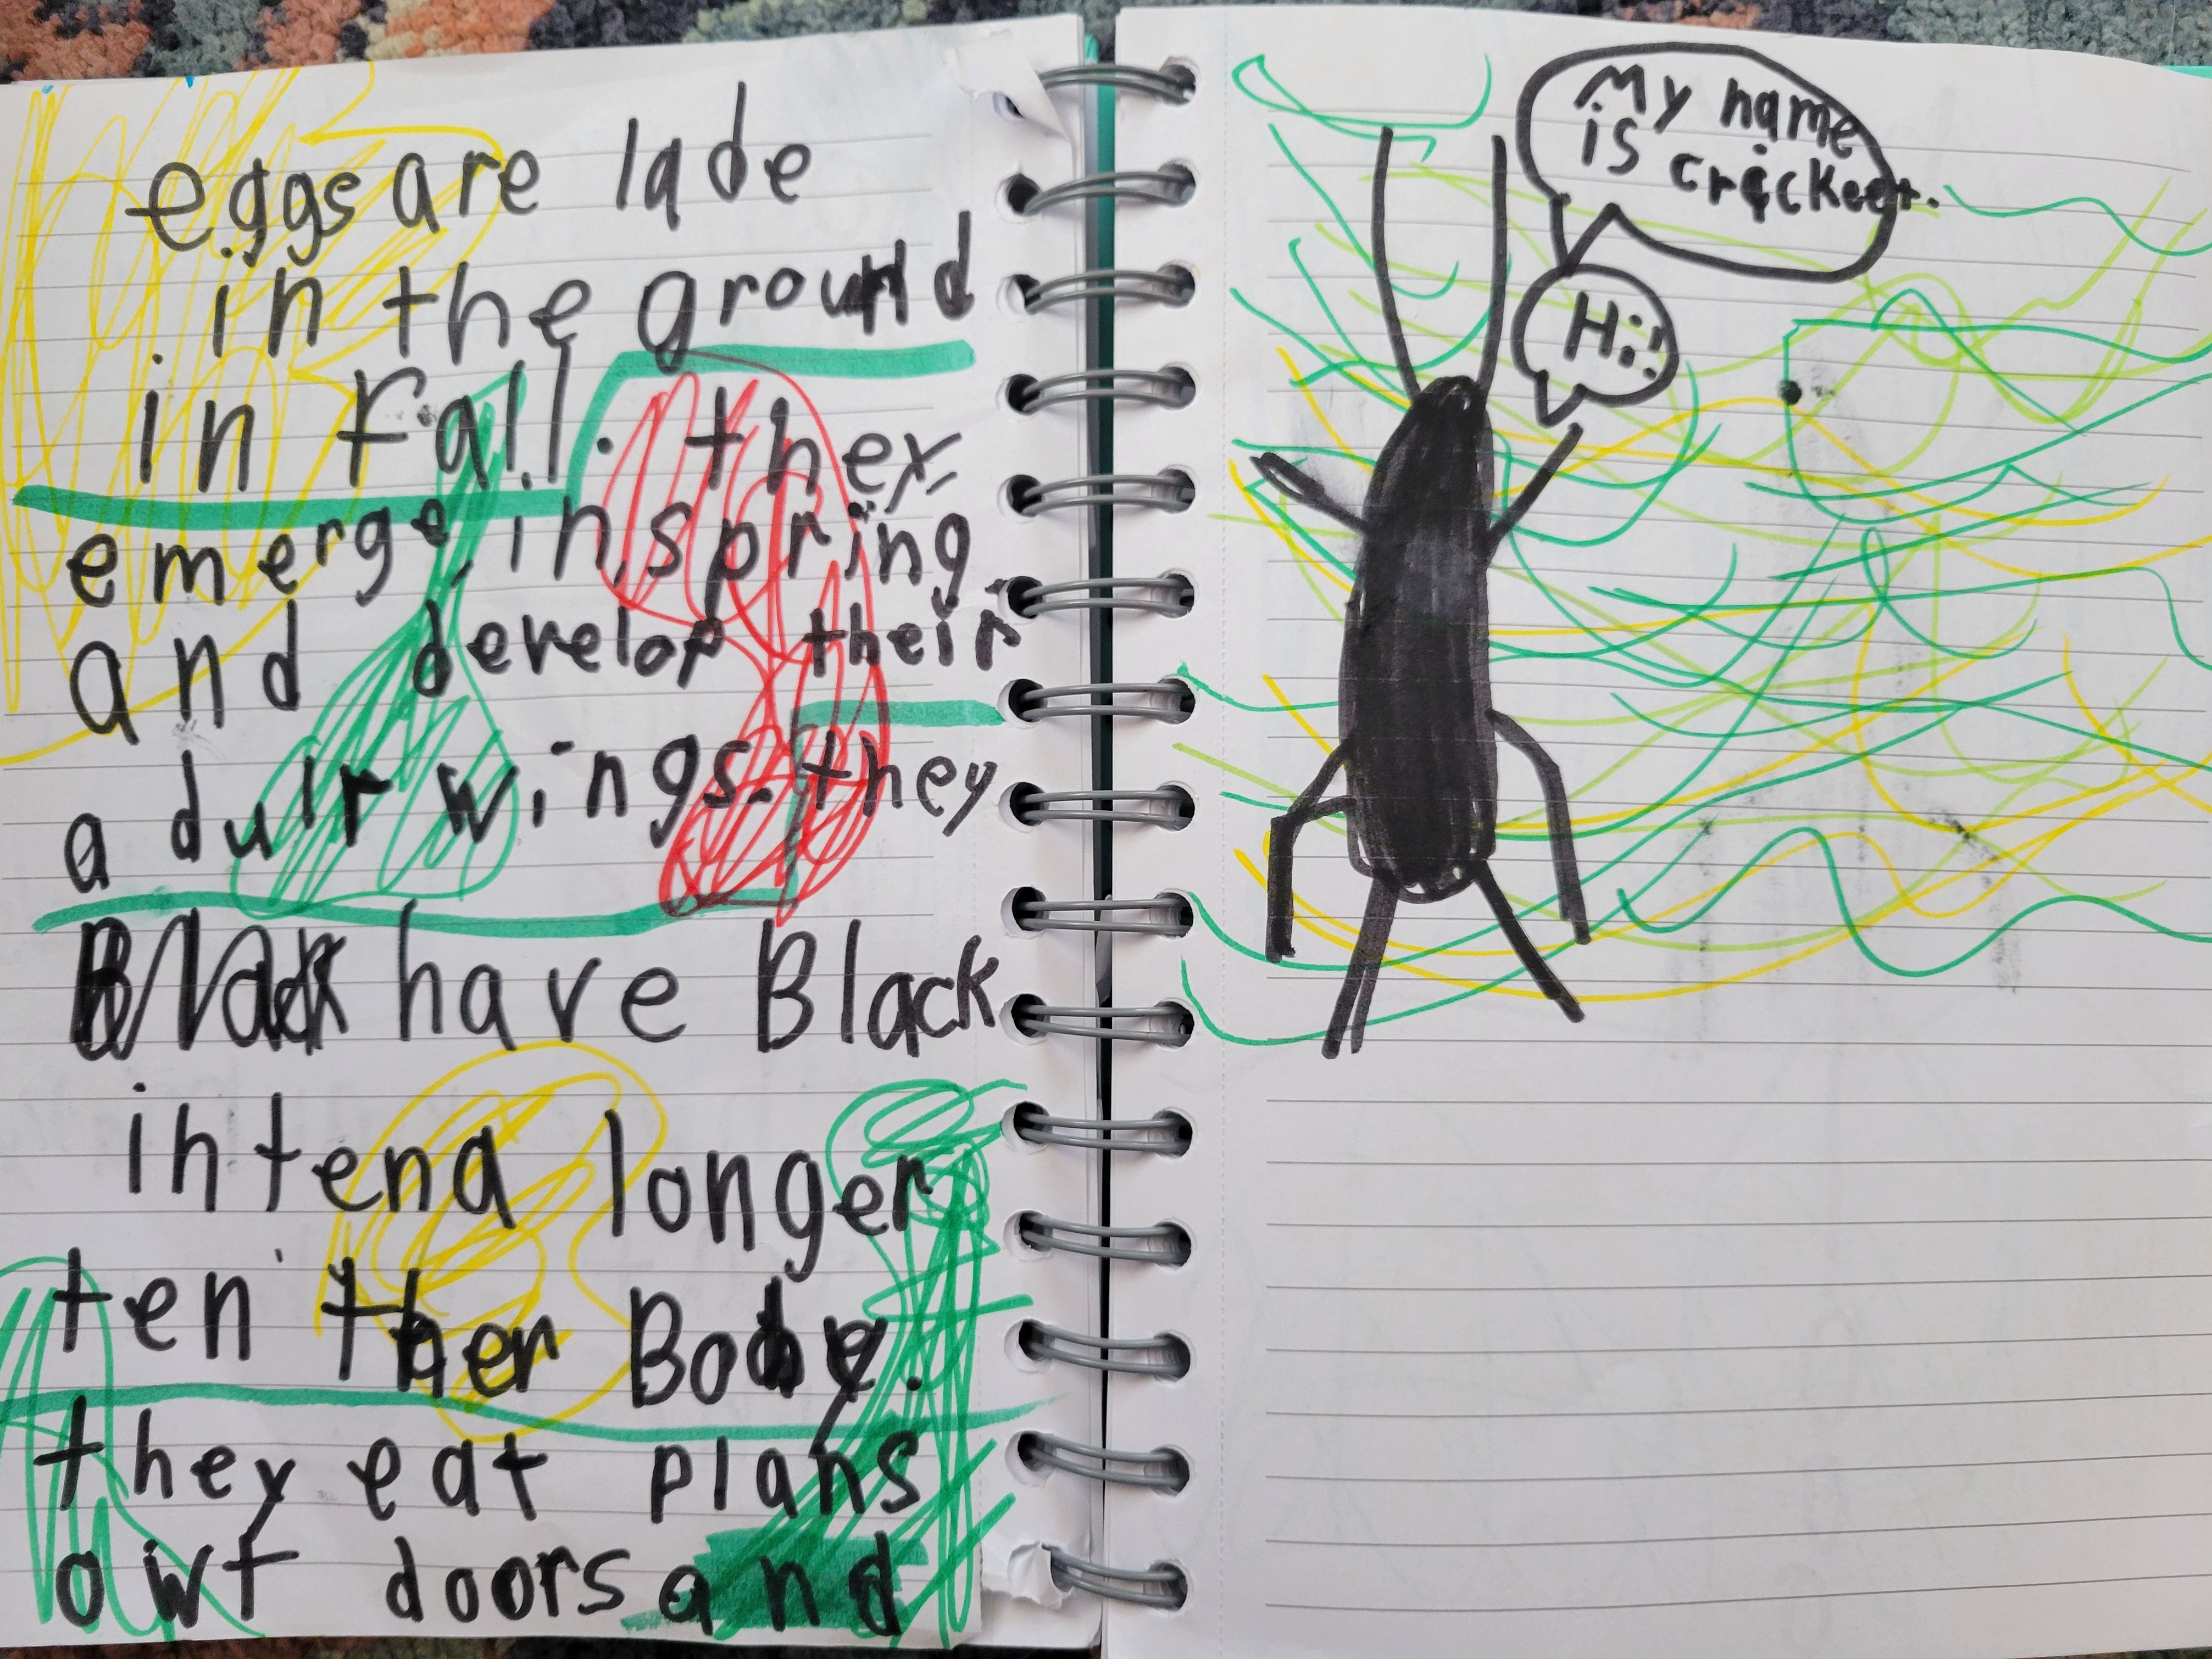 eggs are lade
in the ground
in fall. they
emerge in spring
and develop their
adult wings. they
have Black
intena longer
ten ther Body.
they eat plans
owt doors and
My name
is crickeet.
Hi!